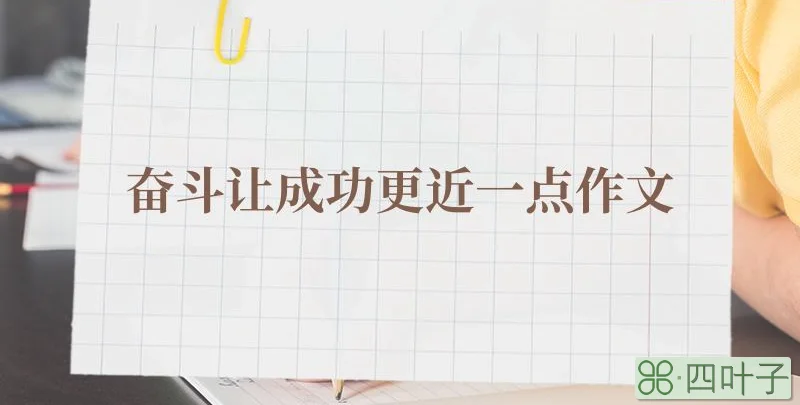 奋斗让成功更近一点作文
四叶子